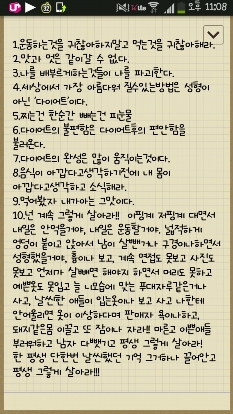 오후 11:08
1.운동하는것을 귀찮아하지말고 먹는것을 귀찮아해라.
2.맛과 멋은 같이갈 수 없다.
3.나를 배부르게하는것들이 나를 파괴한다.
4.세상에서 가장 아름다워 질수있는방법은 성형이
아닌 '다이어트'다.
5.찌는건 한순간 빼는건 피눈물
6.다이어트의 불편함은 다이어트후의 편안함을
불러온다.
7.다이어트의 완성은 많이 움직이는것이다.
8.음식이 아깝다고생각하기전에 내 몸이
아깝다고생각하고 소식해라.
9.먹어봤자 내가아는 그맛이다.
10.넌 계속 그렇게 살아라!! 이핑계 저핑계 대면서
내일은 안먹을거야, 내일은 운동할거야, 넓적하게
엉덩이 붙이고 앉아서 남이 살뺀거나 구경이나하면서
성형했을거야, 흉이나 보고, 계속 연예도 못보고 사진도
못보고 언제가 살빼면 해야지 하면서 머리도 못하고
예쁜옷도 못입고 늘 니모습에 맞는 푸대자루같은거나
사고, 날씬한 애들이 입는옷이나 보고 사고 나한테
안어울리면 옷이 이상하다며 판매자 욕이나하고,
돼지같은몸 이끌고 또 잠이나 자라!! 마르고 이쁜애들
부러워하고 남자 다뺏기고 평생 그렇게 살아라!
한 평생 단한번 날씬했던 기억 그거하나 끌어안고
평생 그렇게 살아라!!!